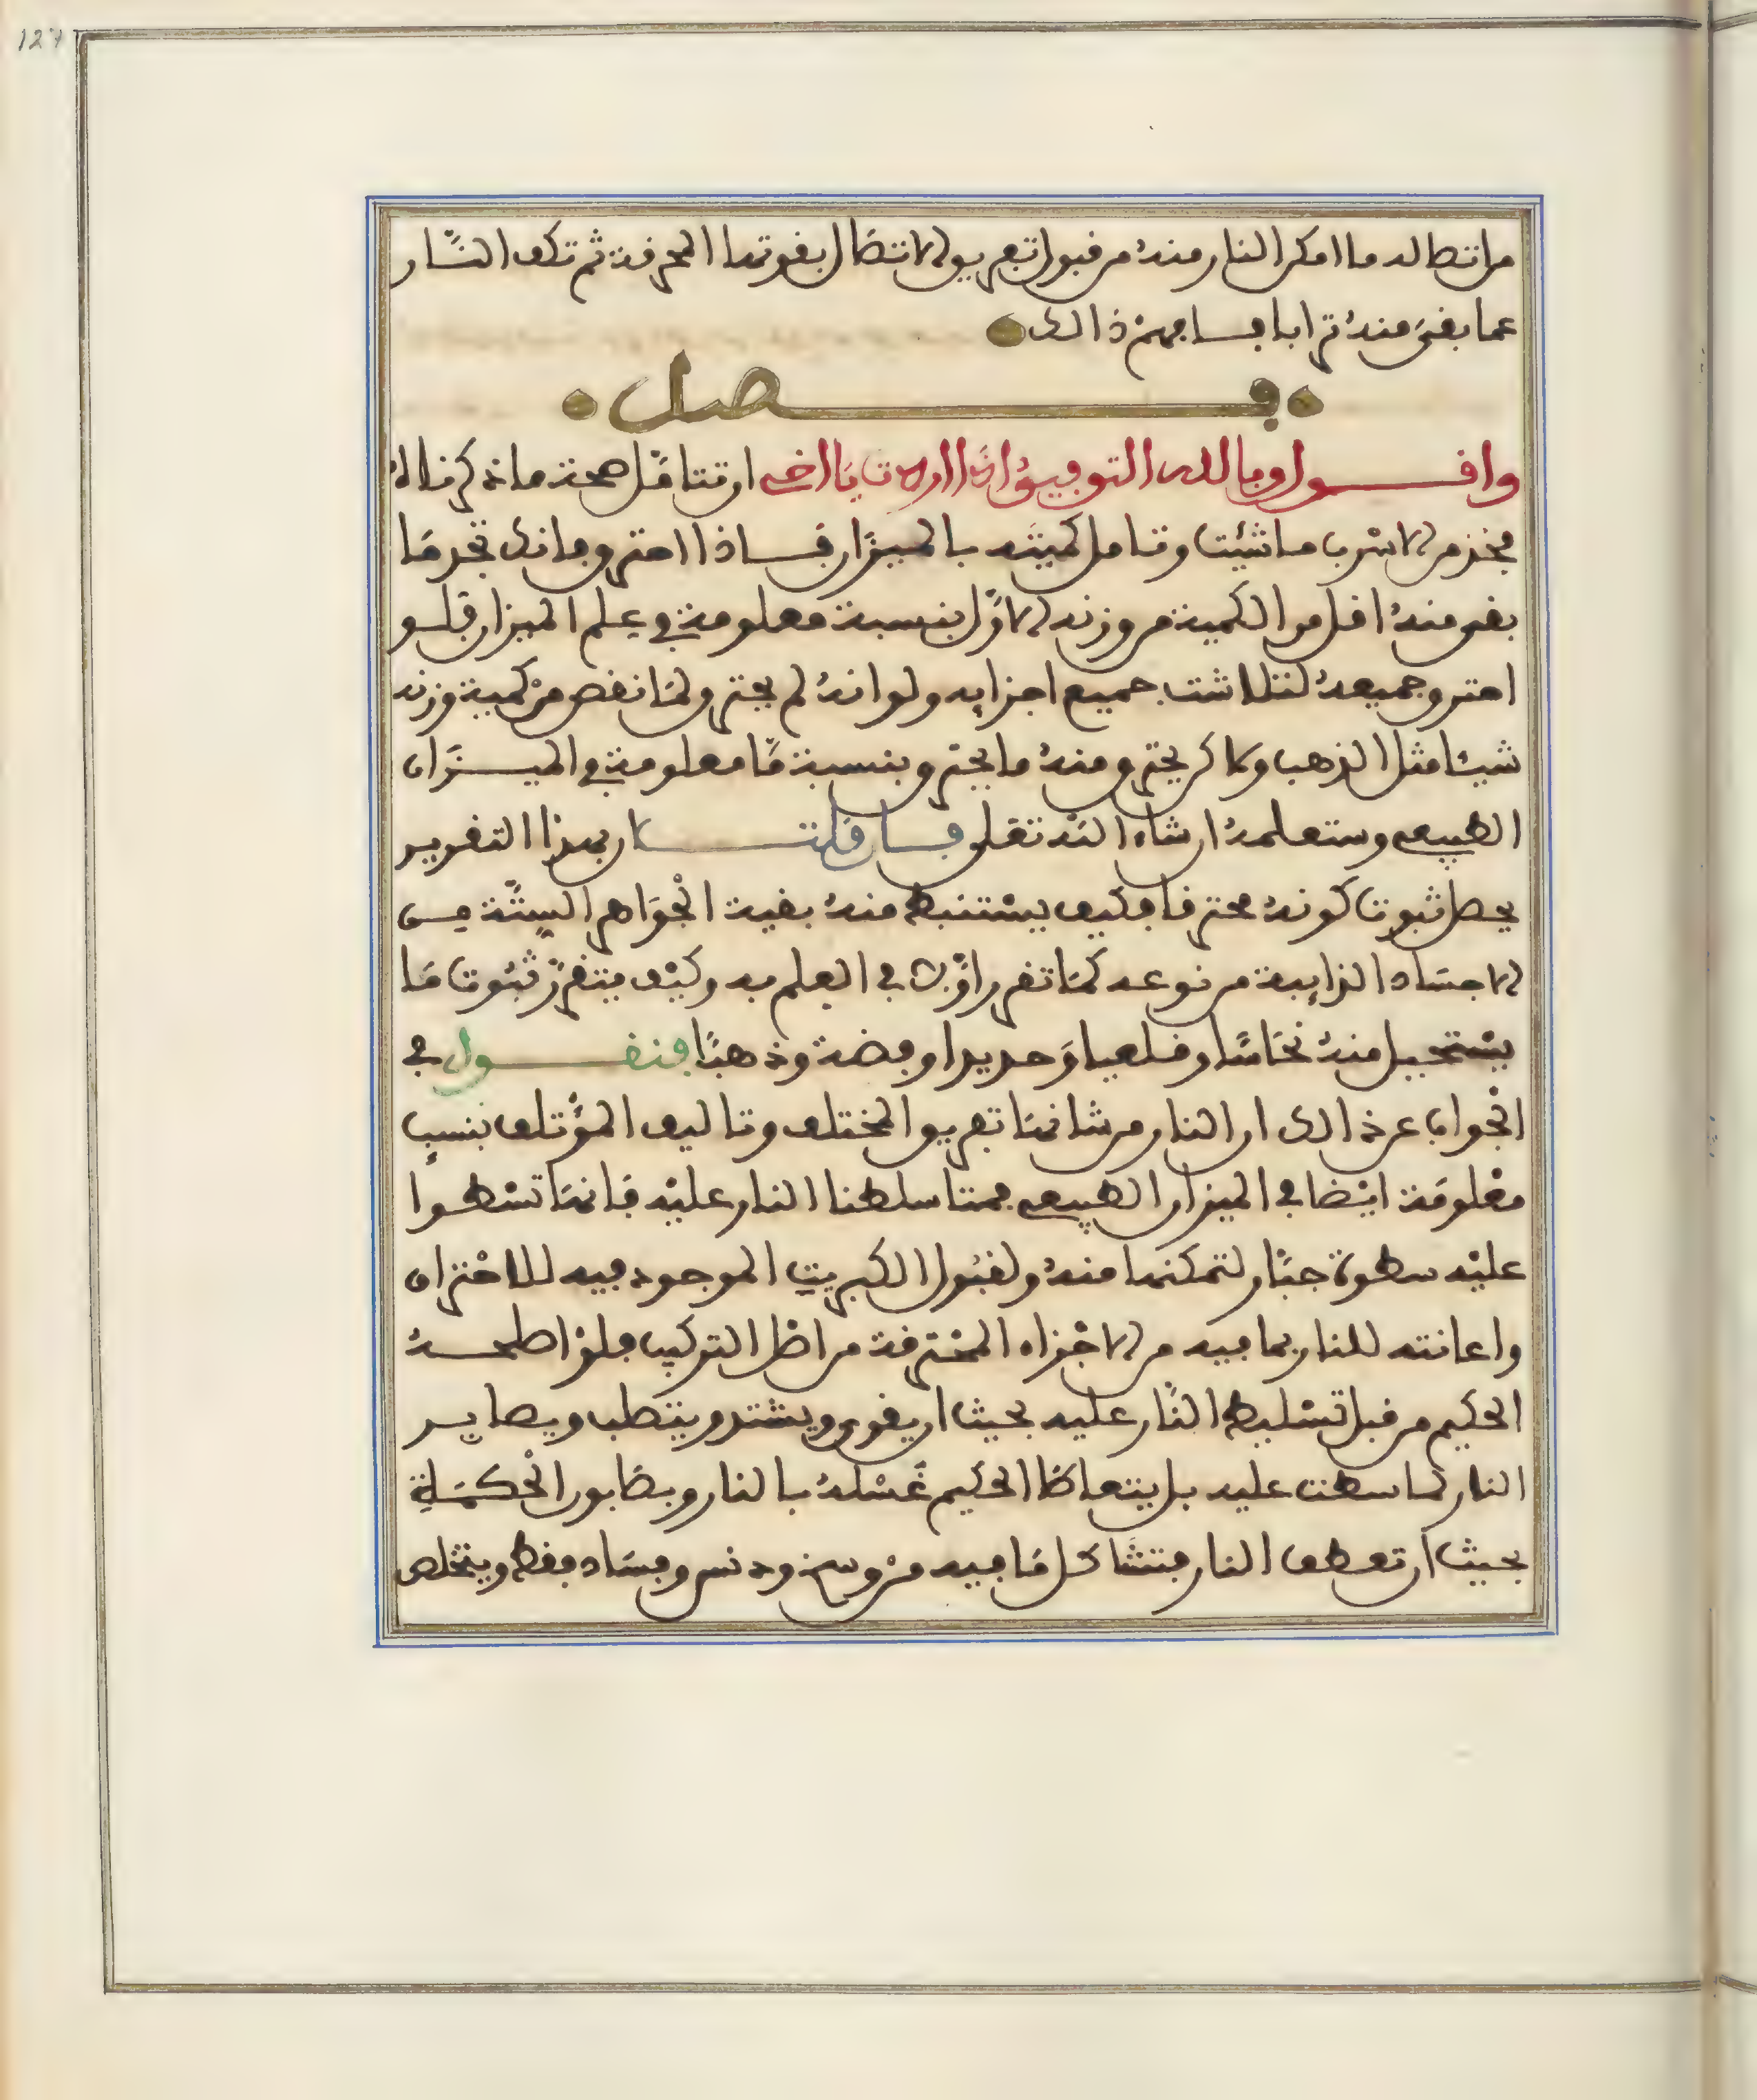 127
من اتصاله ما امكن النار منه من قبول تفريق الاتصال بقوتها المحرقة ثم تكف النار
عما بقي منه ترابا فافهم ذالك
فصل
واقول وبالله التوفيق اذا اردت يا اخي ان تتامل صحة ما ذكرنا لك
فخذ من الاسرب ما شئت وتامل كميته بالميزان فاذا احترق فانك تجد ما
بقي منه اقل من الكمية من وزنه الاول بنسبة معلومة في علم الميزان فلو
احترق جميعه لتلاشت جميع اجزايه ولو انه لم يحترق لما نقص من كمية وزنه
شيئا مثل الذهب ولاكن يحترق منه ما يحترق بنسبة ما معلومة في الميزان
الطبيعي وستعلمه ان شاء الله تعلى فان قلت كان بهذا التقرير
يحصل ثبوت كونه محترقا فكيف يستنبط منه بقية الجواهر الستة من
الاجساد الذايبة من نوعه كما تقرر اولا في العلم به وكيف يتقرر ثبوت ما
يستحيل منه نحاسا وقلعيا وحديدا وفضة وذهبا فنقول في
الجواب عن ذالك ان النار من شانها تفريق المختلف وتاليف المؤتلف بنسب
معلومة ايضا في الميزان الطبيعي فمتا سلطنا النار عليه فانها تسطوا
عليه سطوة جبار لتمكنها منه ولقبول الكبريت الموجود فيه للاحتراق
واعانته للنار بما فيه من الاجزاء المحترقة من اصل التركيب فلو اصلحه
الحكيم من قبل تسليط النار عليه بحيث ان يقوى ويشتد ويتصلب ويصابر
النار لما سطت عليه بل يتعاطا الحكيم غسله بالنار وبصابون الحكمة
بحيث ان تعطف النار فتشاكل ما فيه من وسخ ودنس وفساد فقط ويتخلص